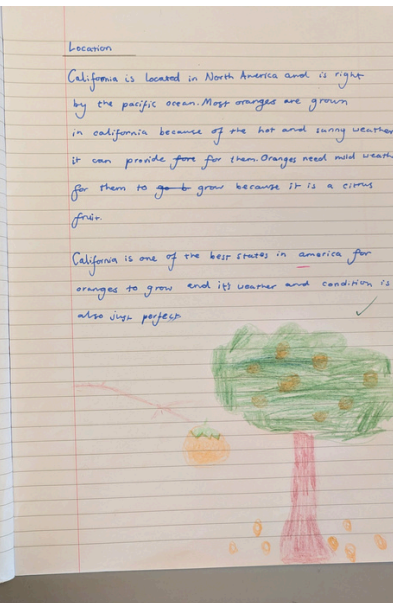 Location
California is located in North America and is right
by the pacific ocean. Most oranges are grown
in california because of the hot and sunny weather
it can provide fore for them. Oranges need mild weath
for them to go b grow because it is a citrus
fruit.
California is one of the best states in america for
oranges to grow and it's weather and condition is
also just perfect